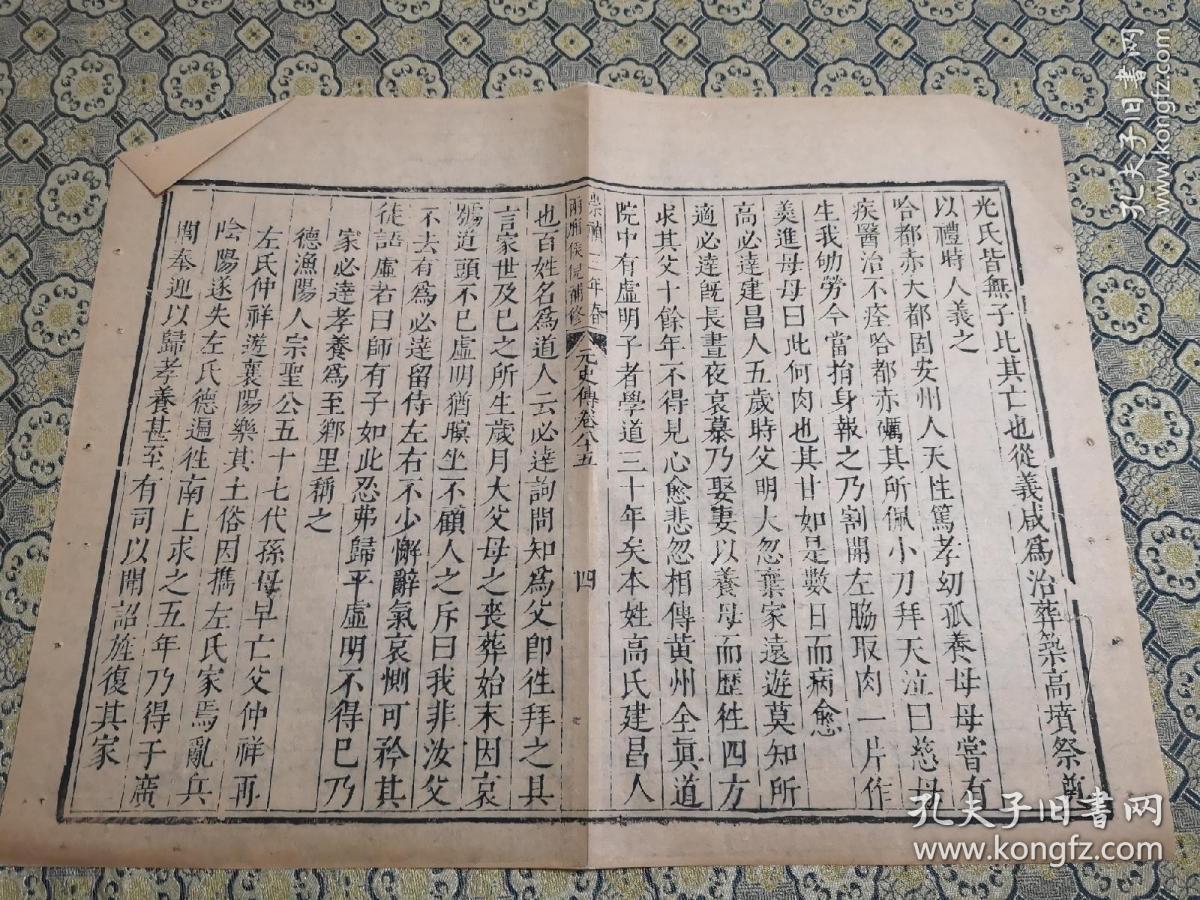 光氏皆無子比其亡也從義咸爲治葬築高墳祭奠
以禮時人義之
哈都赤大都固安州人天性篤孝幼孤養母母嘗有
疾醫治不痊哈都赤礪其所佩小刀拜天泣曰慈母
生我劬勞今當捐身報之乃割開左脇取肉一片作
羮進母母曰此何肉也其甘如是數日而病愈
高必達建昌人五歲時父明大忽棄家遠遊莫知所
適必達旣長晝夜哀慕乃娶妻以養母而歷徃四方
求其父十餘年不得見心愈悲忽相傳黃州全眞道
院中有虛明子者學道三十年矣本姓高氏建昌人
崇禎三年春
南廂侯倪補修
元史傳卷八五
四
也百姓名爲道人云必達詢問知爲父卽徃拜之具
言家世及已之所生歲月大父母之喪葬始末因哀
號道頭不已虛明猶瞑坐不顧人之斥曰我非汝父
不去有爲必達留侍左右不少懈辭氣哀惻可矜其
徒語虛者曰師有子如此忍弗歸乎虛明不得已乃
家必達孝養爲至鄉里稱之
德漁陽人宗聖公五十七代孫母早亡父仲祥再
左氏仲祥遊襄陽樂其土俗因攜左氏家焉亂兵
陰陽遂失左氏德遍徃南上求之五年乃得于廣
間奉迎以歸孝養甚至有司以聞詔旌復其家
孔夫子旧書网
www.kongfz.com
孔夫子旧書网
www.kongfz.com